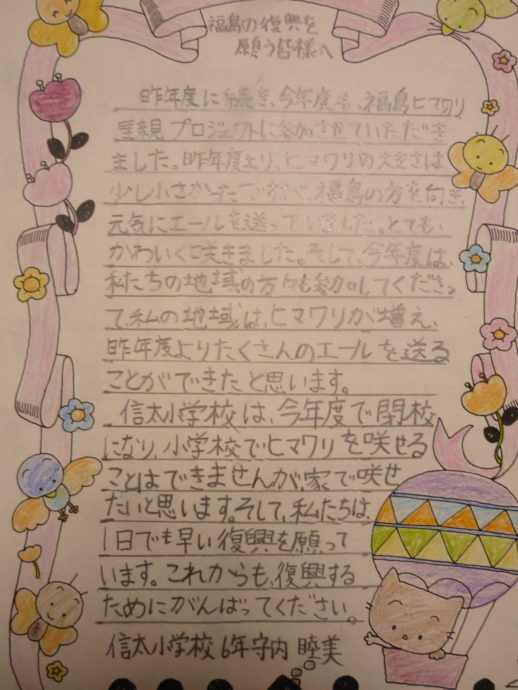 福島の復興を
願う皆様へ
昨年度に続き、今年度も、福島ヒマワリ
里親プロジェクトに参加させていただき
ました。昨年度より、ヒマワリの大きさは
少し小さかったですが、福島の方を向き
元気にエールを送っていました。とても、
かわいく咲きました。そして、今年度は、
私たちの地域の方々も参加してくださっ
て、私の地域は、ヒマワリが増え、
昨年度よりたくさんのエールを送る
ことができたと思います。
信太小学校は、今年度で閉校
になり、小学校でヒマワリを咲せる
ことはできませんが家で咲せ
たいと思います。そして、私たちは、
1日でも早い復興を願って
います。これからも、復興する
ためにがんばってください。
信太小学校 6年 守内 睦美